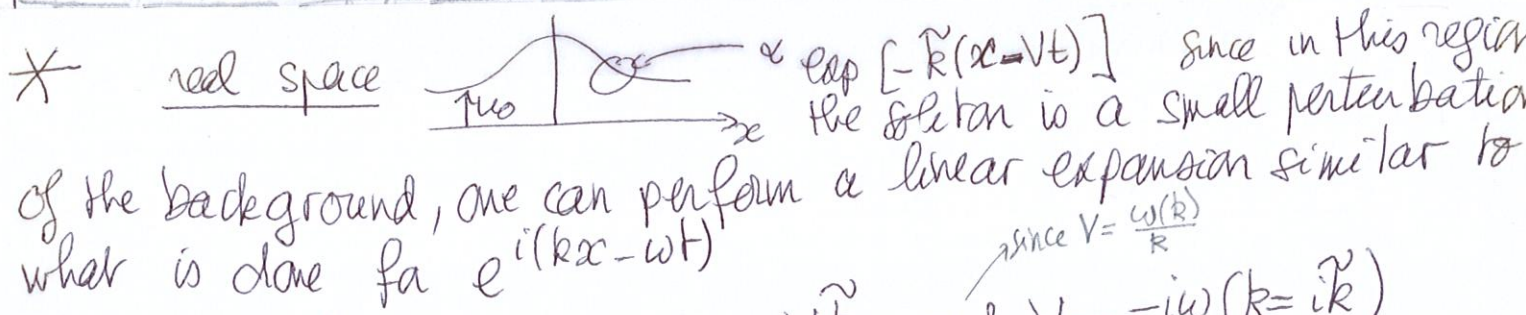 * real space ↑u₀ x ∝ exp [-k̃(x-Vt)] since in this region
the soliton is a small perturbation
of the background, one can perform a linear expansion similar to
what is done for e^{i(kx-ωt)} since V = ω(k)/k
-iω(k=ik̃)